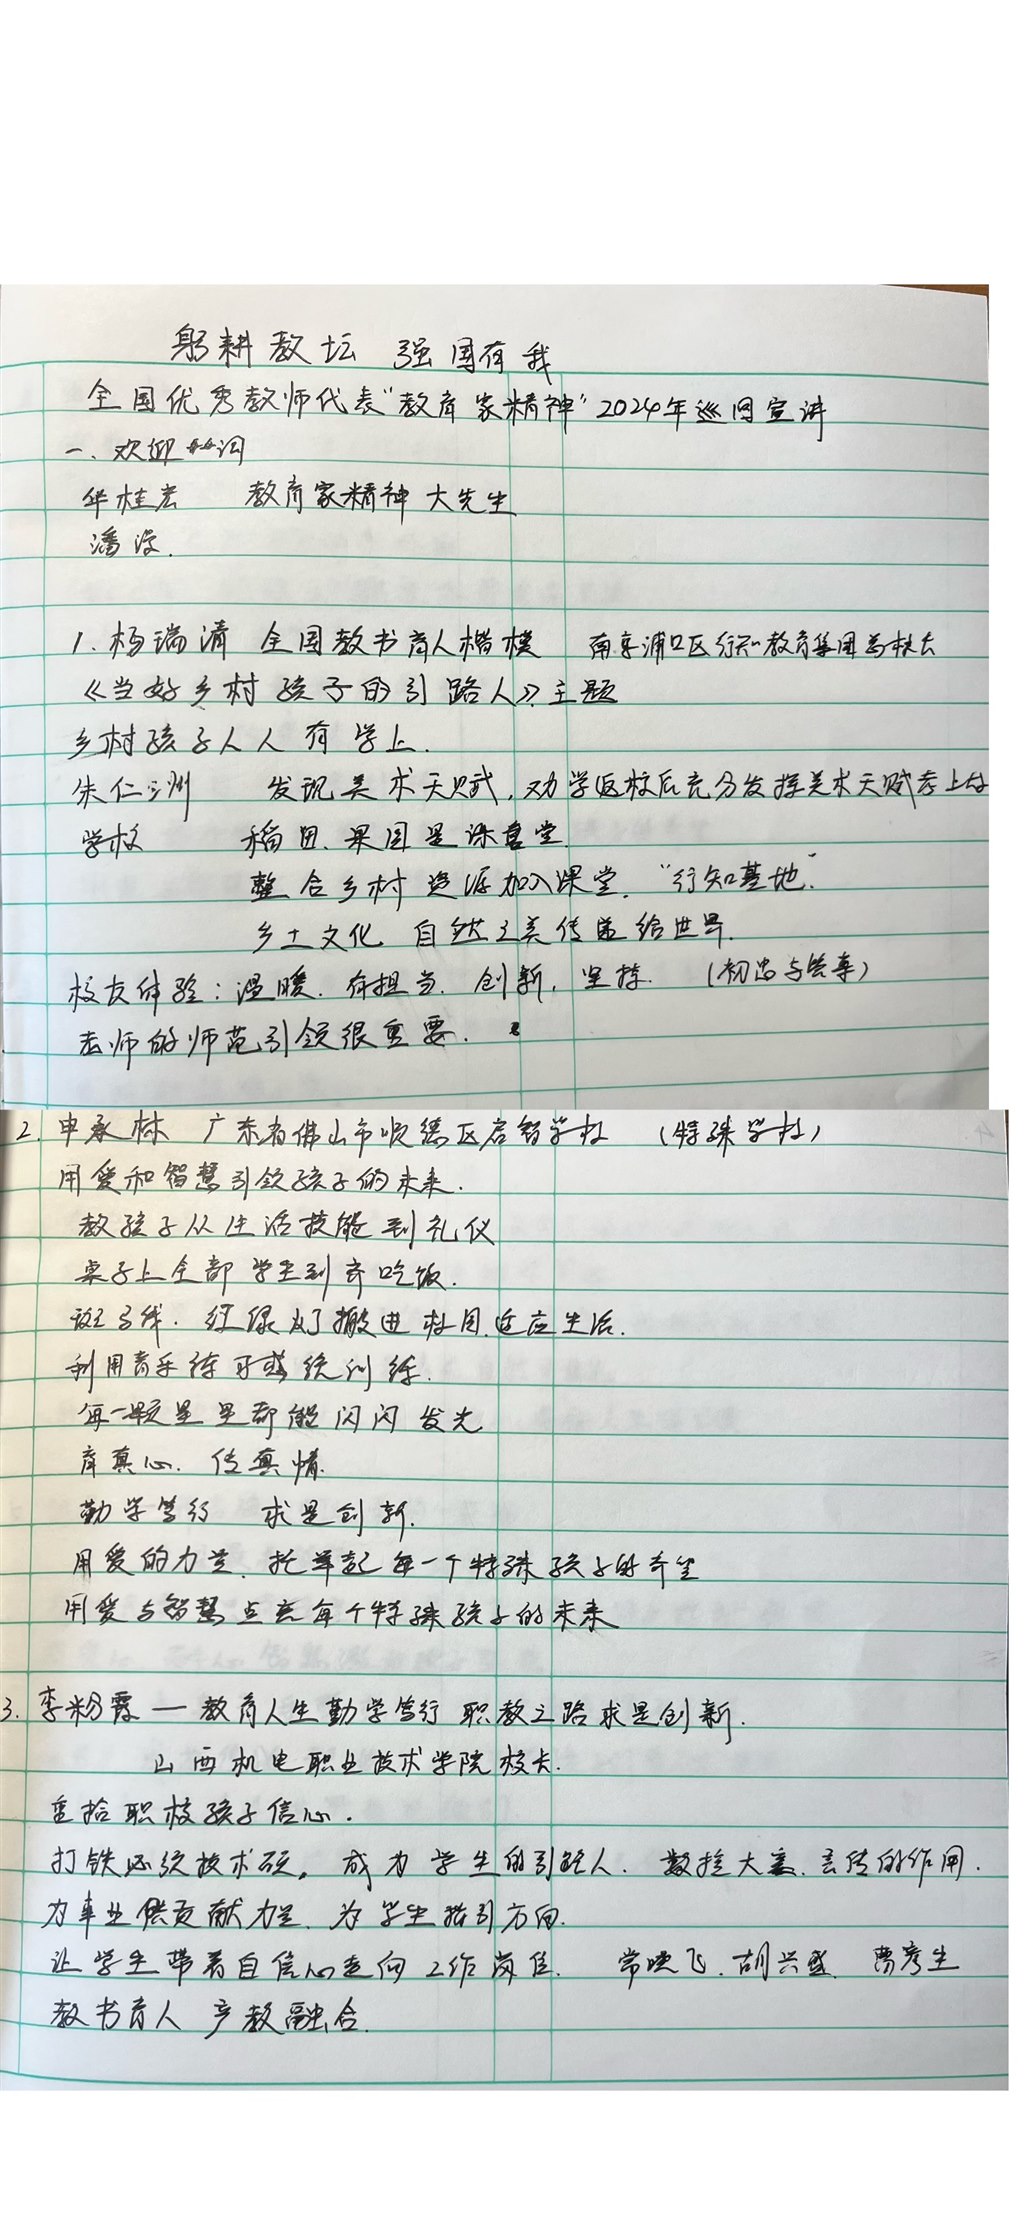 躬耕教坛 强国有我
全国优秀教师代表"教育家精神"2024年巡回宣讲
一、欢迎词
华桂宏 教育家精神 大先生
潘漫.
1.杨瑞清 全国教书育人楷模 南京浦口区行知教育集团总校长
《当好乡村孩子的引路人》主题
乡村孩子人人有学上.
朱仁洲 发现美术天赋,劝学返校后充分发挥美术天赋考上大
学校 稻田、果园是课堂.
整合乡村资源加入课堂."行知基地."
乡土文化 自然之美传递给世界.
校友体验:温暖.有担当.创新.坚持. (初心与笃奉)
老师的师范引领很重要.
2.申承林 广东省佛山市顺德区启智学校 (特殊学校)
用爱和智慧引领孩子的未来.
教孩子从生活技能到礼仪
桌子上全部学生到齐吃饭.
斑马线.红绿灯搬进校园.适应生活.
利用音乐练习 统训练.
每一颗星星都能闪闪发光
育真心.传真情.
勤学笃行 求是创新.
用爱的力量.托举起每一个特殊孩子的希望
用爱与智慧点亮每个特殊孩子的未来
3.李粉霞—教育人生勤学笃行 职教之路求是创新.
山西机电职业技术学院校长.
重拾职校孩子信心.
打铁必须技术硬。成为学生的引路人. 数控大赛.言传的作用.
为事业供贡献力量.为学生指引方向.
让学生带着自信心走向工作岗位. 常晓飞.胡兴盛.曹彦生
教书育人 产教融合.